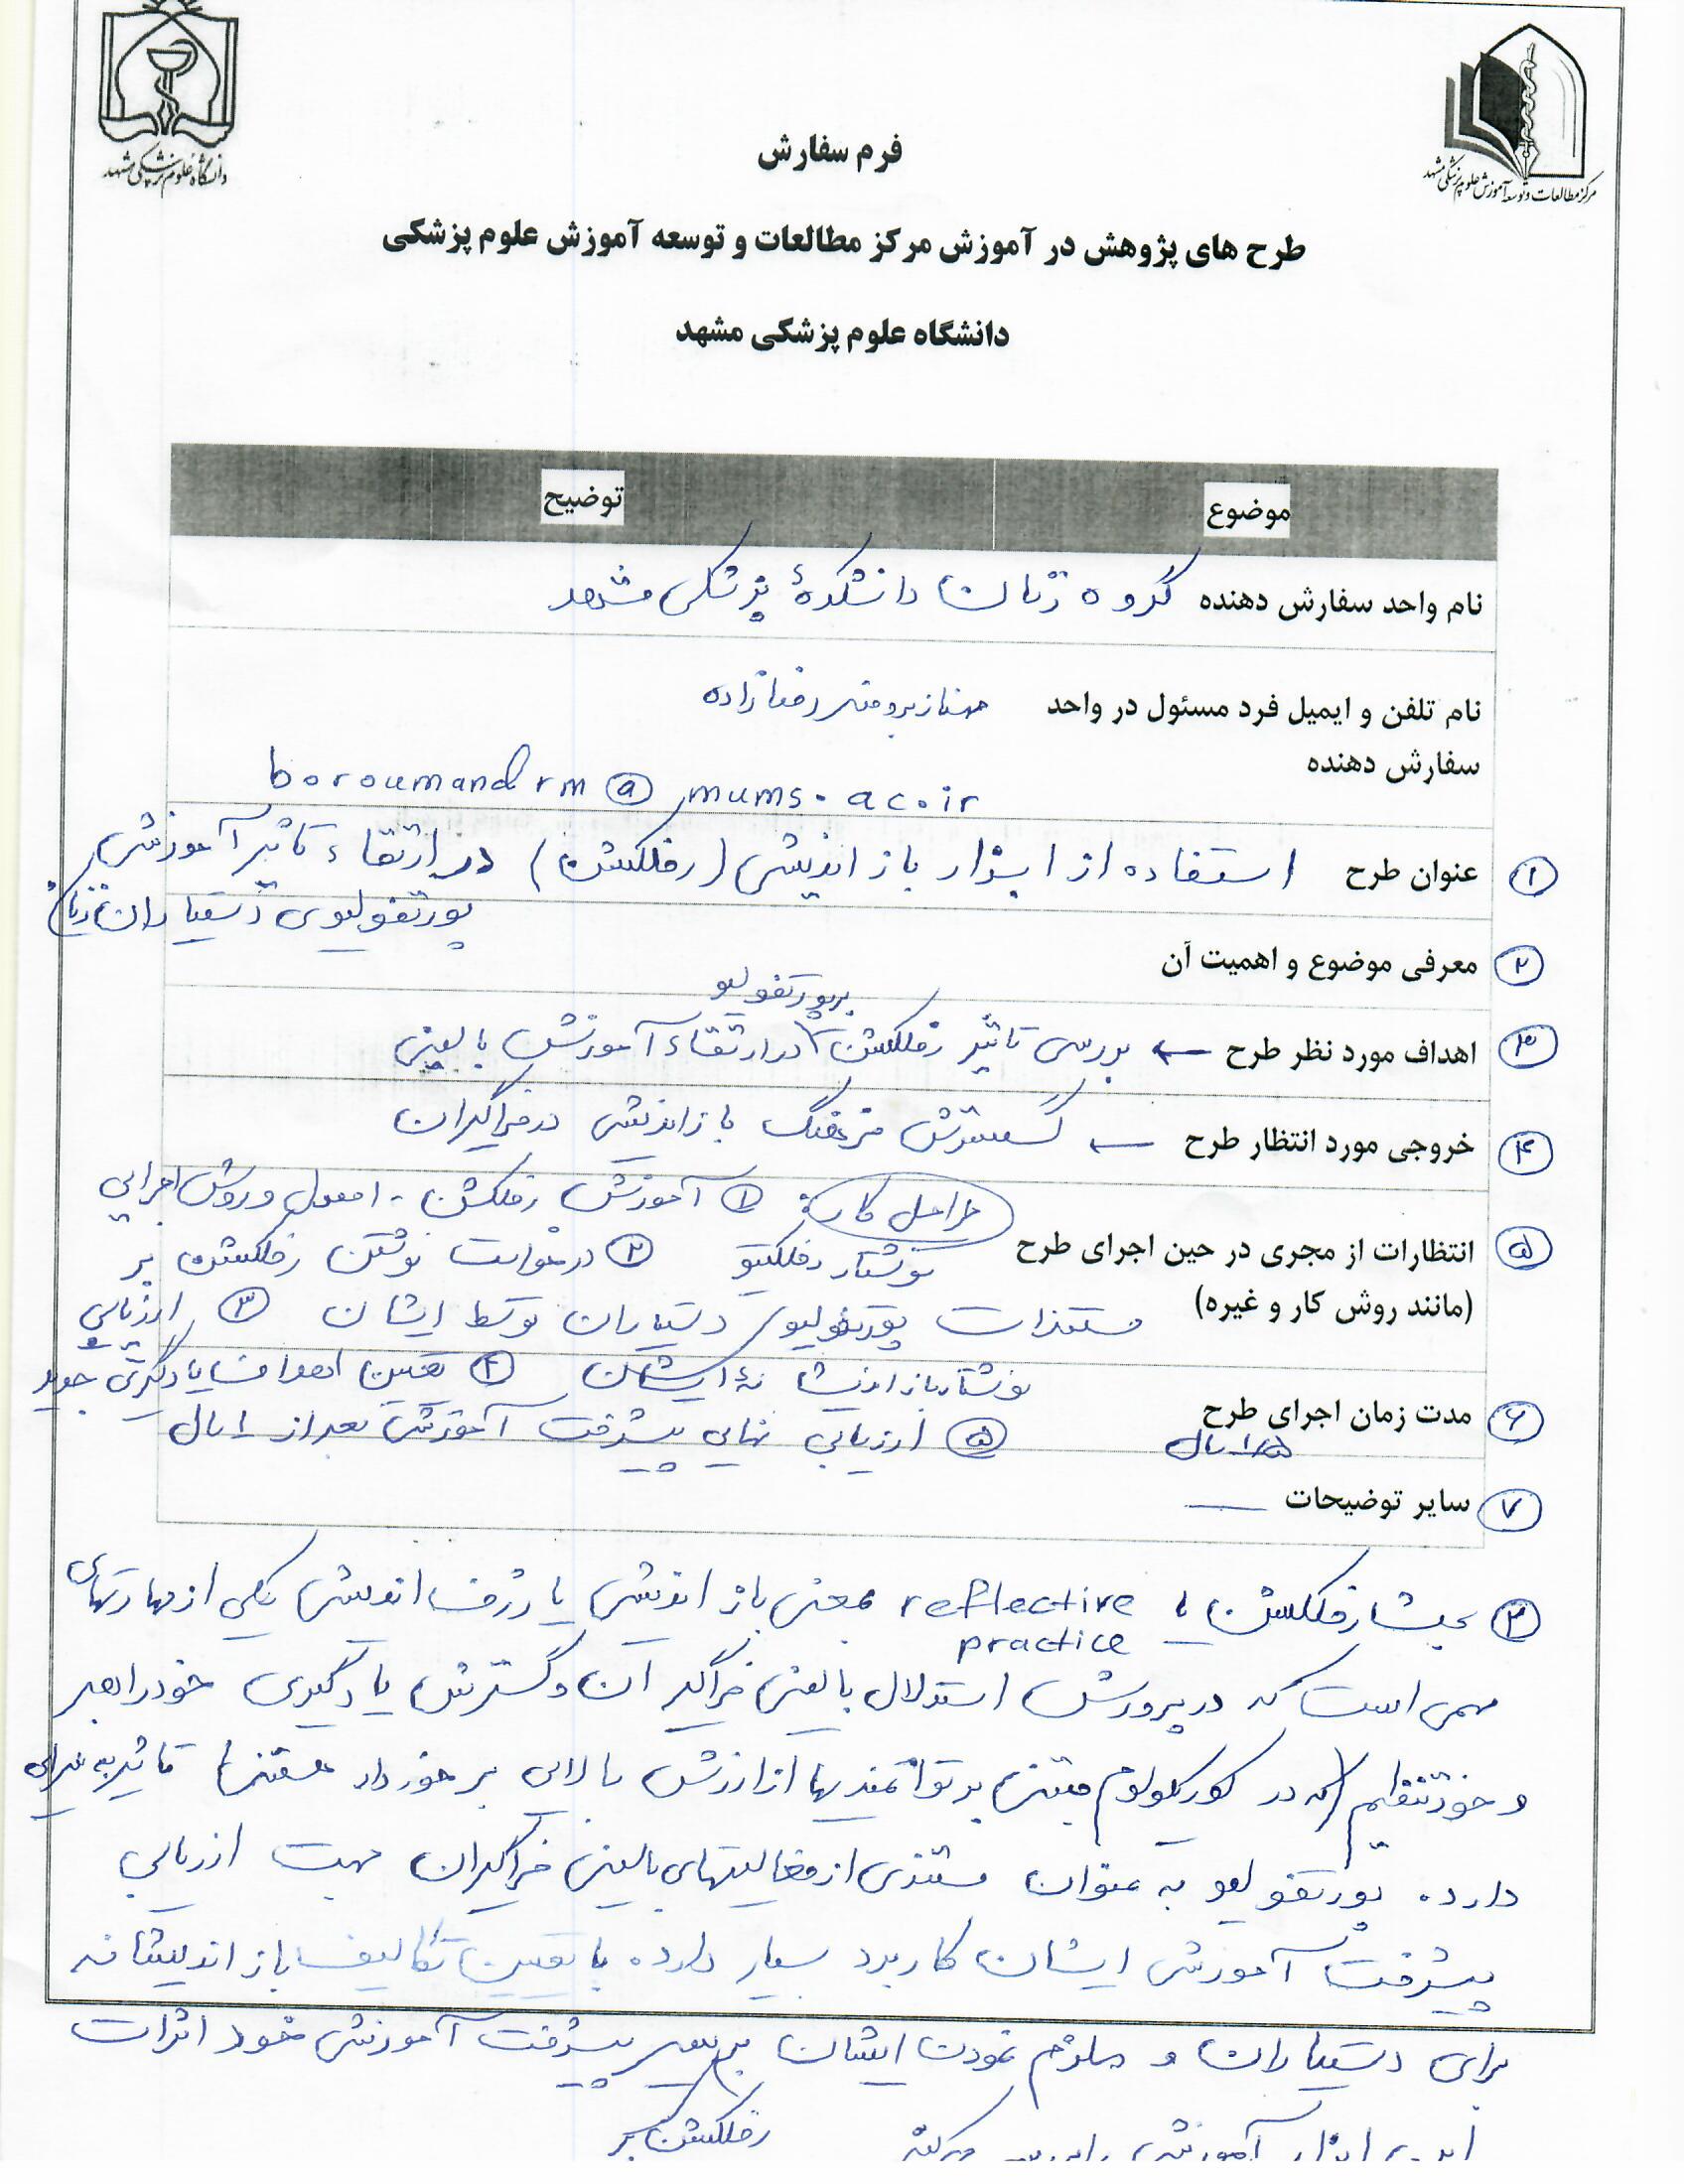 دانشگاه علوم پزشکی مشهد
مرکز مطالعات و توسعه آموزش علوم پزشکی مشهد
فرم سفارش
طرح های پژوهش در آموزش مرکز مطالعات و توسعه آموزش علوم پزشکی
دانشگاه علوم پزشکی مشهد
موضوع توضیح
نام واحد سفارش دهنده گروه زنان دانشکدهٔ پزشکی مشهد
نام تلفن و ایمیل فرد مسئول در واحد مهناز برومند رضازاده
سفارش دهنده
boroumandrm@mums.ac.ir
۱ عنوان طرح استفاده از ابزار بازاندیشی (رفلکشن) در ارتقاء تاثیر آموزشی
پورتفولیوی دستیاران زنان
۲ معرفی موضوع و اهمیت آن
بر پورتفولیو
۳ اهداف مورد نظر طرح ← بررسی تاثیر رفلکشن در ارتقاء آموزش بالینی
۴ خروجی مورد انتظار طرح ← گسترش فرهنگ بازاندیشی در فراگیران
مراحل کار: ۱ آموزش رفلکشن - اصول و روش اجرایی
۵ انتظارات از مجری در حین اجرای طرح نوشتار رفلکتیو ۲ درخواست نوشتن رفلکشن بر
(مانند روش کار و غیره) مستندات پورتفولیو دستیاران توسط ایشان ۳ ارزیابی
نوشتار بازاندیشانهٔ ایشان ۴ تعیین اهداف یادگیری جدید
۶ مدت زمان اجرای طرح ۵ ارزیابی نهایی پیشرفت آموزشی بعد از ۱ سال
۱/۵ سال
۷ سایر توضیحات —
۲ مبحث رفلکشن یا reflective practice بمعنی بازاندیشی یا ژرف اندیشی یکی از مهارتهای
مهمی است که در پرورش استدلال بالینی فراگیر آن و گسترش یادگیری خودراهبر
و خودتنظیم (که در کوریکولوم مبتنی بر توانمندیها از ارزش بالایی برخوردار هستند) تاثیر به سزایی
دارد. پورتفولیو به عنوان مستندی از فعالیتهای بالینی فراگیران جهت ارزیابی
پیشرفت آموزشی ایشان کاربرد بسیار دارد. با تعیین تکالیف بازاندیشانه
برای دستیاران و ملزم نمودن ایشان بر سیر پیشرفت آموزشی خود اثرات
رفلکشن بر
این ابزار آموزشی را بررسی می‌کند